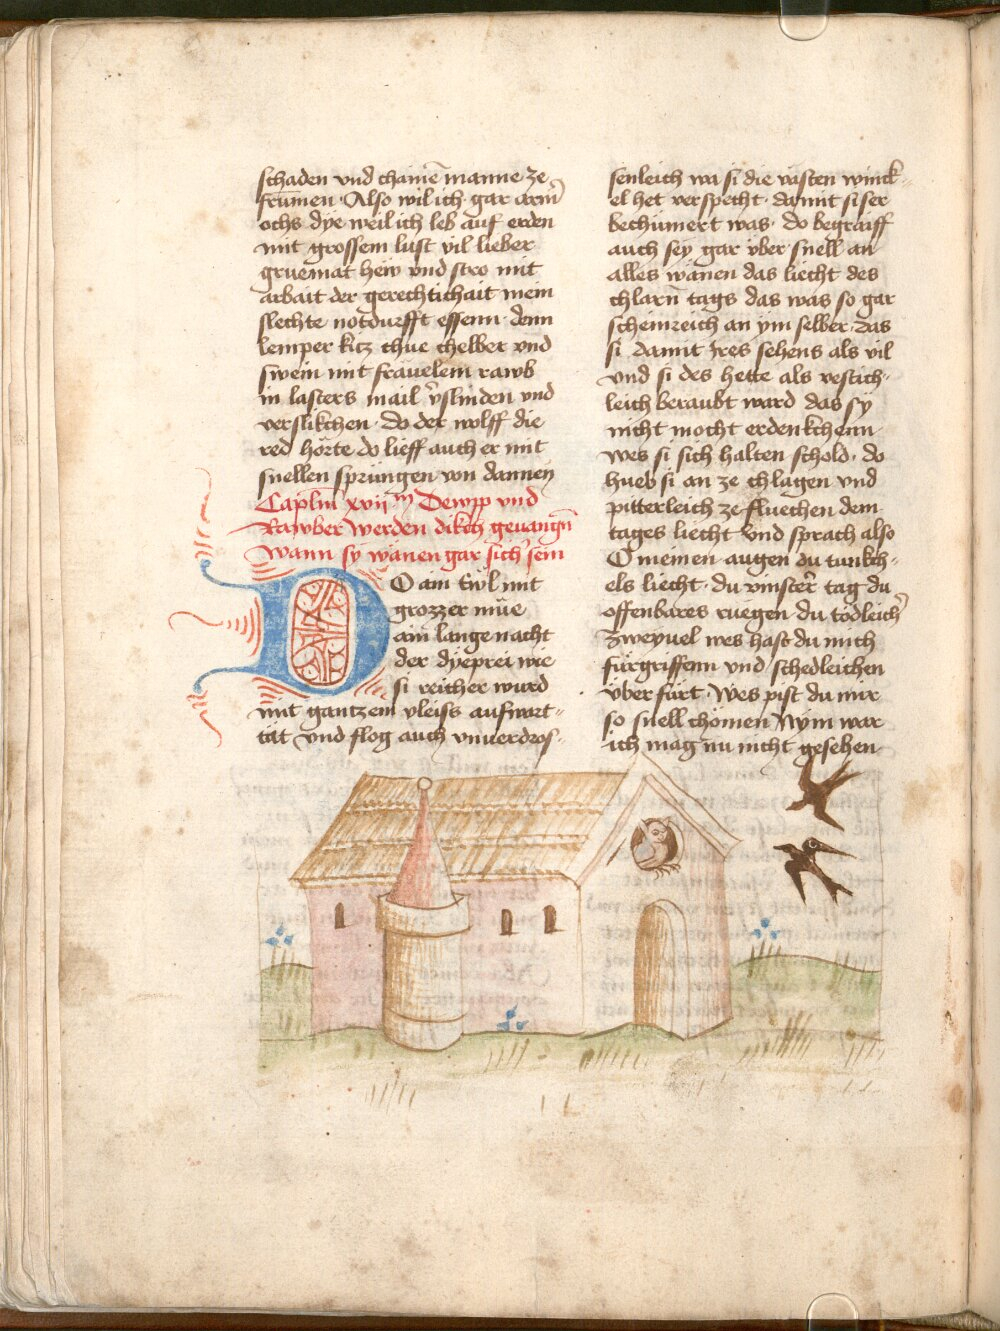 schaden vnd chaine manne ze
frumen · Also wil ich gar arm̄
ochs dye weil ich leb auf erden
mit grossem lust vil lieber
gruemat hew vnd stro mit
arbait der gerechtichait mein
slechte notdurfft essenn · denn
lemper kicz chue chelber vnd
swein mit fräuelem rawb
in lasters mail v̈slinden vnd
verslikchen · do der wolff die
red hörte do lieff auch er mit
snellen sprüngen von dannen
Capl̄m xvij m̄ Dewpp vnd
Rawber werden dikch geuangn̄
wann sy wänen gar sich̄ sein
DO am twl mit
grozzer müe
ain lange nacht
der dyeprei wie
si reicher wurd
mit gantzem vleiss aufwart-
tät vnd flog auch vnuerdros-
senleich wa si die vasten winck-
el het verspecht · damit si ser
bechümert was · do begraiff
auch sey gar vber snell an
alles wänen das liecht des
chlarn̄ tags das was so gar
scheinreich an ym selber · das
si damit Ires sehens als vil
vnd si des hette als vestich-
leich beraubt ward das sÿ
nicht mocht erdenkchenn
wes si sich halten schold · do
hueb si an ze chlagen vnd
pitterleich ze fluechen dem
tages liecht vnd sprach also
O meinen augen du tunkch-
els liecht · du vinster̄ tag du
offenbares ruegen · du tödleich̄
zweyuel wes hast du mich
fürgriffenn vnd schedleichen
über fürt · wes pist du mir
so snell chömen Nym war
ich mag nu nicht gesehen